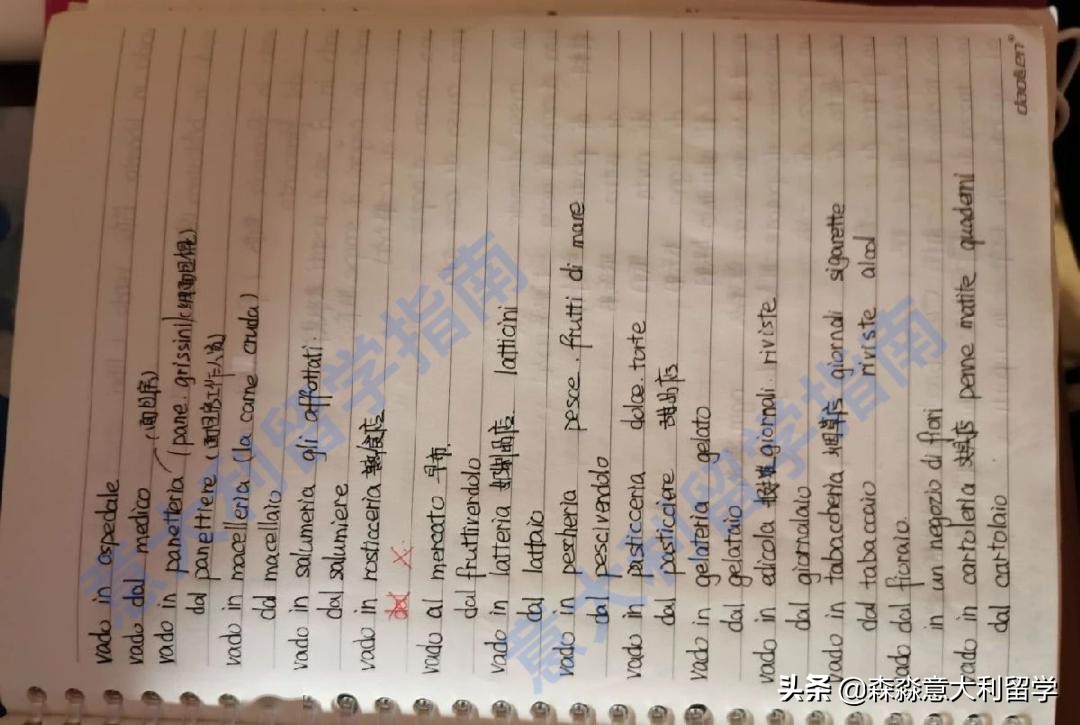 daolen®
vado in ospedale
vado dal medico
vado in panetteria (面包店) (pane. grissini/
dal panettiere (面包房工作人员)
vado in macelleria (la carne cruda)
dal macellaio
vado in salumeria gli affattati.
dal salumiere
vado in rosticceria 熟食店
dal X
vado al mercato 早市
dal fruttivendolo
vado in latteria 奶制品店 latticini
dal lattaio
vado in pescheria pesce. frutti di mare
dal pescivendolo
vado in pasticceria dolce. torte
dal pasticciere 甜品店
vado in gelateria gelato
dal gelataio
vado in edicola 报刊亭 giornali. riviste
dal giornalaio
vado in tabaccheria 烟草店 giornali sigarette
dal tabaccaio riviste alcol
vado dal fioraio.
in un negozio di fiori
vado in cartoleria 文具店 penne matite quaderni
dal cartolaio
意大利留学指南
意大利留学指南
头条 @森淼意大利留学